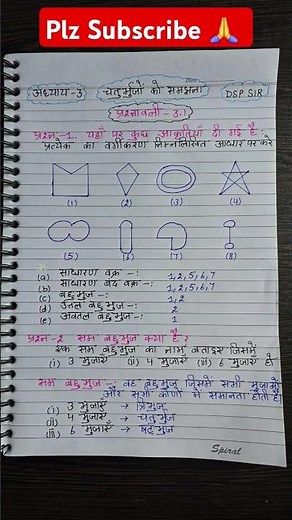 Plz Subscribe 🙏
अध्याय-3 चतुर्भुजों को समझना DSP SIR
प्रश्नावली - 3.1
प्रश्न-1. यहाँ पर कुछ आकृतियाँ दी गई हैं :
प्रत्येक का वर्गीकरण निम्नलिखित आधार पर करें
(1) (2) (3) (4)
(5) (6) (7) (8)
(a) साधारण वक्र -: 1,2,5,6,7
(b) साधारण बंद वक्र -: 1,2,5,6,7
(c) बहुभुज -: 1,2
(d) उत्तल बहुभुज -: 2
(e) अवतल बहुभुज -: 1
प्रश्न-2 सम बहुभुज क्या है ?
एक सम बहुभुज का नाम बताइए जिसमें
(i) 3 भुजाएँ (ii) 4 भुजाएँ (iii) 6 भुजाएँ हों
सम बहुभुज -: वह बहुभुज जिसमें सभी भुजाओं
और सभी कोणों में समानता होती है।
(i) 3 भुजाएँ → त्रिभुज
(ii) 4 भुजाएँ → चतुर्भुज
(iii) 6 भुजाएँ → षट्भुज
Spiral